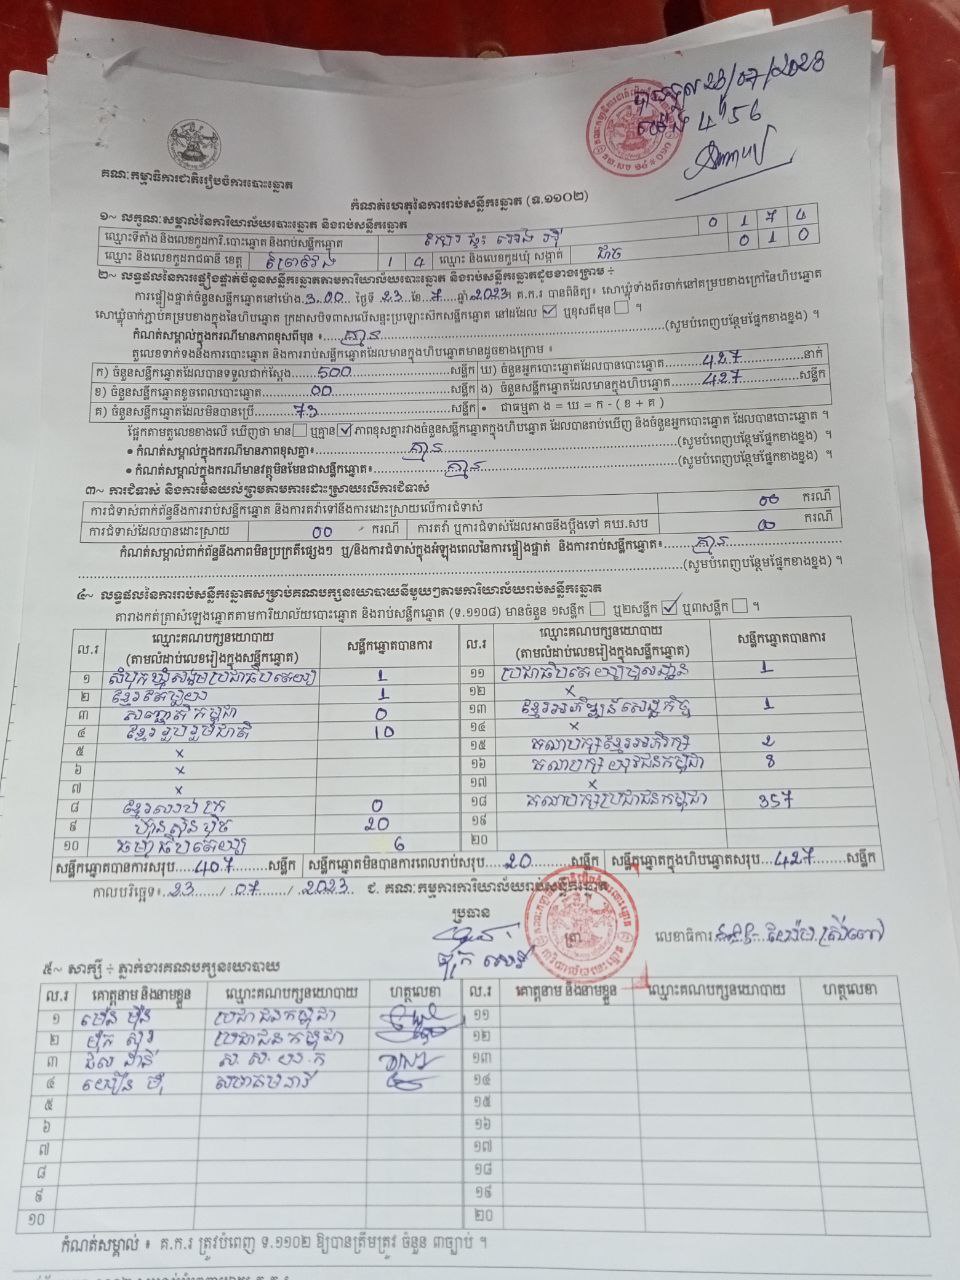 បានចូល 23/07/2023
ម៉ោង 4 : 56
គណៈកម្មាធិការជាតិរៀបចំការបោះឆ្នោត
កំណត់ហេតុនៃការរាប់សន្លឹកឆ្នោត (ទ.១១០២)
១~ លក្ខណៈសម្គាល់នៃការិយាល័យបោះឆ្នោត និងរាប់សន្លឹកឆ្នោត
ឈ្មោះទីតាំង និងលេខកូដការិ.បោះឆ្នោត និងរាប់សន្លឹកឆ្នោត 0 1 7 4
ឈ្មោះ និងលេខកូដរាជធានី ខេត្ត ព្រៃវែង 1 4 ឈ្មោះ និងលេខកូដឃុំ សង្កាត់ 0 1 0
២~ លទ្ធផលនៃការផ្ទៀងផ្ទាត់ចំនួនសន្លឹកឆ្នោតតាមការិយាល័យបោះឆ្នោត និងរាប់សន្លឹកឆ្នោតដូចខាងក្រោម ÷
ការផ្ទៀងផ្ទាត់ចំនួនសន្លឹកឆ្នោតនៅម៉ោង 3.00 ថ្ងៃទី 23 ខែ 7 ឆ្នាំ 2023។ គ.ក.រ បានពិនិត្យ៖ សោឃ្លុំទាំងពីរចាក់នៅគម្របខាងក្រៅនៃហិបឆ្នោត
សោឃ្លុំចាក់ភ្ជាប់គម្របខាងក្នុងនៃហិបឆ្នោត ក្រដាសបិទពាសលើសន្ទះប្រឡោះស៊កសន្លឹកឆ្នោត នៅដដែល ✓ ឬខុសពីមុន ។
កំណត់សម្គាល់ក្នុងករណីមានភាពខុសពីមុន ៖ គ្មាន (សូមបំពេញបន្ថែមផ្នែកខាងខ្នង) ។
តួលេខទាក់ទងនឹងការបោះឆ្នោត និងការរាប់សន្លឹកឆ្នោតដែលមានក្នុងហិបឆ្នោតមានដូចខាងក្រោម ៖
ក) ចំនួនសន្លឹកឆ្នោតដែលបានទទួលជាក់ស្តែង 500 សន្លឹក ឃ) ចំនួនអ្នកបោះឆ្នោតដែលបានបោះឆ្នោត 427 នាក់
ខ) ចំនួនសន្លឹកឆ្នោតខូចពេលបោះឆ្នោត 00 សន្លឹក ង) ចំនួនសន្លឹកឆ្នោតដែលមានក្នុងហិបឆ្នោត 427 សន្លឹក
គ) ចំនួនសន្លឹកឆ្នោតដែលមិនបានប្រើ 73 សន្លឹក • ជាធម្មតា ង = ឃ = ក - ( ខ + គ )
ផ្អែកតាមតួលេខខាងលើ ឃើញថា មាន ឬគ្មាន ✓ ភាពខុសគ្នារវាងចំនួនសន្លឹកឆ្នោតក្នុងហិបឆ្នោត ដែលបានរាប់ឃើញ និងចំនួនអ្នកបោះឆ្នោត ដែលបានបោះឆ្នោត ។
• កំណត់សម្គាល់ក្នុងករណីមានភាពខុសគ្នា៖ គ្មាន (សូមបំពេញបន្ថែមផ្នែកខាងខ្នង) ។
• កំណត់សម្គាល់ក្នុងករណីមានវត្ថុមិនមែនជាសន្លឹកឆ្នោត៖ គ្មាន (សូមបំពេញបន្ថែមផ្នែកខាងខ្នង) ។
៣~ ការជំទាស់ និងការមិនយល់ព្រមតាមការដោះស្រាយលើការជំទាស់
ការជំទាស់ពាក់ព័ន្ធនឹងការរាប់សន្លឹកឆ្នោត និងការតវ៉ាទៅនឹងការដោះស្រាយលើការជំទាស់ 00 ករណី
ការជំទាស់ដែលបានដោះស្រាយ 00 ករណី ការតវ៉ា ឬការជំទាស់ដែលអាចនឹងប្តឹងទៅ គឃ.សប 00 ករណី
កំណត់សម្គាល់ពាក់ព័ន្ធនឹងភាពមិនប្រក្រតីផ្សេងៗ ឬ/និងការជំទាស់ក្នុងអំឡុងពេលនៃការផ្ទៀងផ្ទាត់ និងការរាប់សន្លឹកឆ្នោត៖ គ្មាន
(សូមបំពេញបន្ថែមផ្នែកខាងខ្នង) ។
៤~ លទ្ធផលនៃការរាប់សន្លឹកឆ្នោតសម្រាប់គណបក្សនយោបាយនីមួយៗតាមការិយាល័យរាប់សន្លឹកឆ្នោត
តារាងកត់ត្រាសំឡេងឆ្នោតតាមការិយាល័យបោះឆ្នោត និងរាប់សន្លឹកឆ្នោត (ទ.១១០៨) មានចំនួន ១សន្លឹក ឬ២សន្លឹក ✓ ឬ៣សន្លឹក ។
ល.រ ឈ្មោះគណបក្សនយោបាយ (តាមលំដាប់លេខរៀងក្នុងសន្លឹកឆ្នោត) សន្លឹកឆ្នោតបានការ ល.រ ឈ្មោះគណបក្សនយោបាយ (តាមលំដាប់លេខរៀងក្នុងសន្លឹកឆ្នោត) សន្លឹកឆ្នោតបានការ
១ សំបុកឃ្មុំសង្គមប្រជាធិបតេយ្យ 1 ១១ ប្រជាធិបតេយ្យមូលដ្ឋាន 1
២ ខ្មែរតែមួយ 1 ១២ x
៣ សញ្ជាតិកម្ពុជា 0 ១៣ ខ្មែរអភិវឌ្ឍន៍សេដ្ឋកិច្ច 1
៤ ខ្មែររួបរួមជាតិ 10 ១៤ x
៥ x ១៥ គណបក្សខ្មែរអភិរក្ស 2
៦ x ១៦ គណបក្សយុវជនកម្ពុជា 8
៧ x ១៧ x
៨ 0 ១៨ គណបក្សប្រជាជនកម្ពុជា 357
៩ ហ្វ៊ុនស៊ិនប៉ិច 20 ១៩
១០ ធម្មាធិបតេយ្យ 6 ២០
សន្លឹកឆ្នោតបានការសរុប 407 សន្លឹក សន្លឹកឆ្នោតមិនបានការពេលរាប់សរុប 20 សន្លឹក សន្លឹកឆ្នោតក្នុងហិបឆ្នោតសរុប 427 សន្លឹក
កាលបរិច្ឆេទ៖ 23 / 07 / 2023 ជ. គណៈកម្មការការិយាល័យរាប់សន្លឹកឆ្នោត
ប្រធាន
លេខាធិការ
៥~ សាក្សី ÷ ភ្នាក់ងារគណបក្សនយោបាយ
ល.រ គោត្តនាម និងនាមខ្លួន ឈ្មោះគណបក្សនយោបាយ ហត្ថលេខា ល.រ គោត្តនាម និងនាមខ្លួន ឈ្មោះគណបក្សនយោបាយ ហត្ថលេខា
១ ប្រជាជនកម្ពុជា ១១
២ ប្រជាជនកម្ពុជា ១២
៣ ស.ស.យ.ក ១៣
៤ សមាគមនារី ១៤
៥ ១៥
៦ ១៦
៧ ១៧
៨ ១៨
៩ ១៩
១០ ២០
កំណត់សម្គាល់ ៖ គ.ក.រ ត្រូវបំពេញ ទ.១១០២ ឱ្យបានត្រឹមត្រូវ ចំនួន ៣ច្បាប់ ។